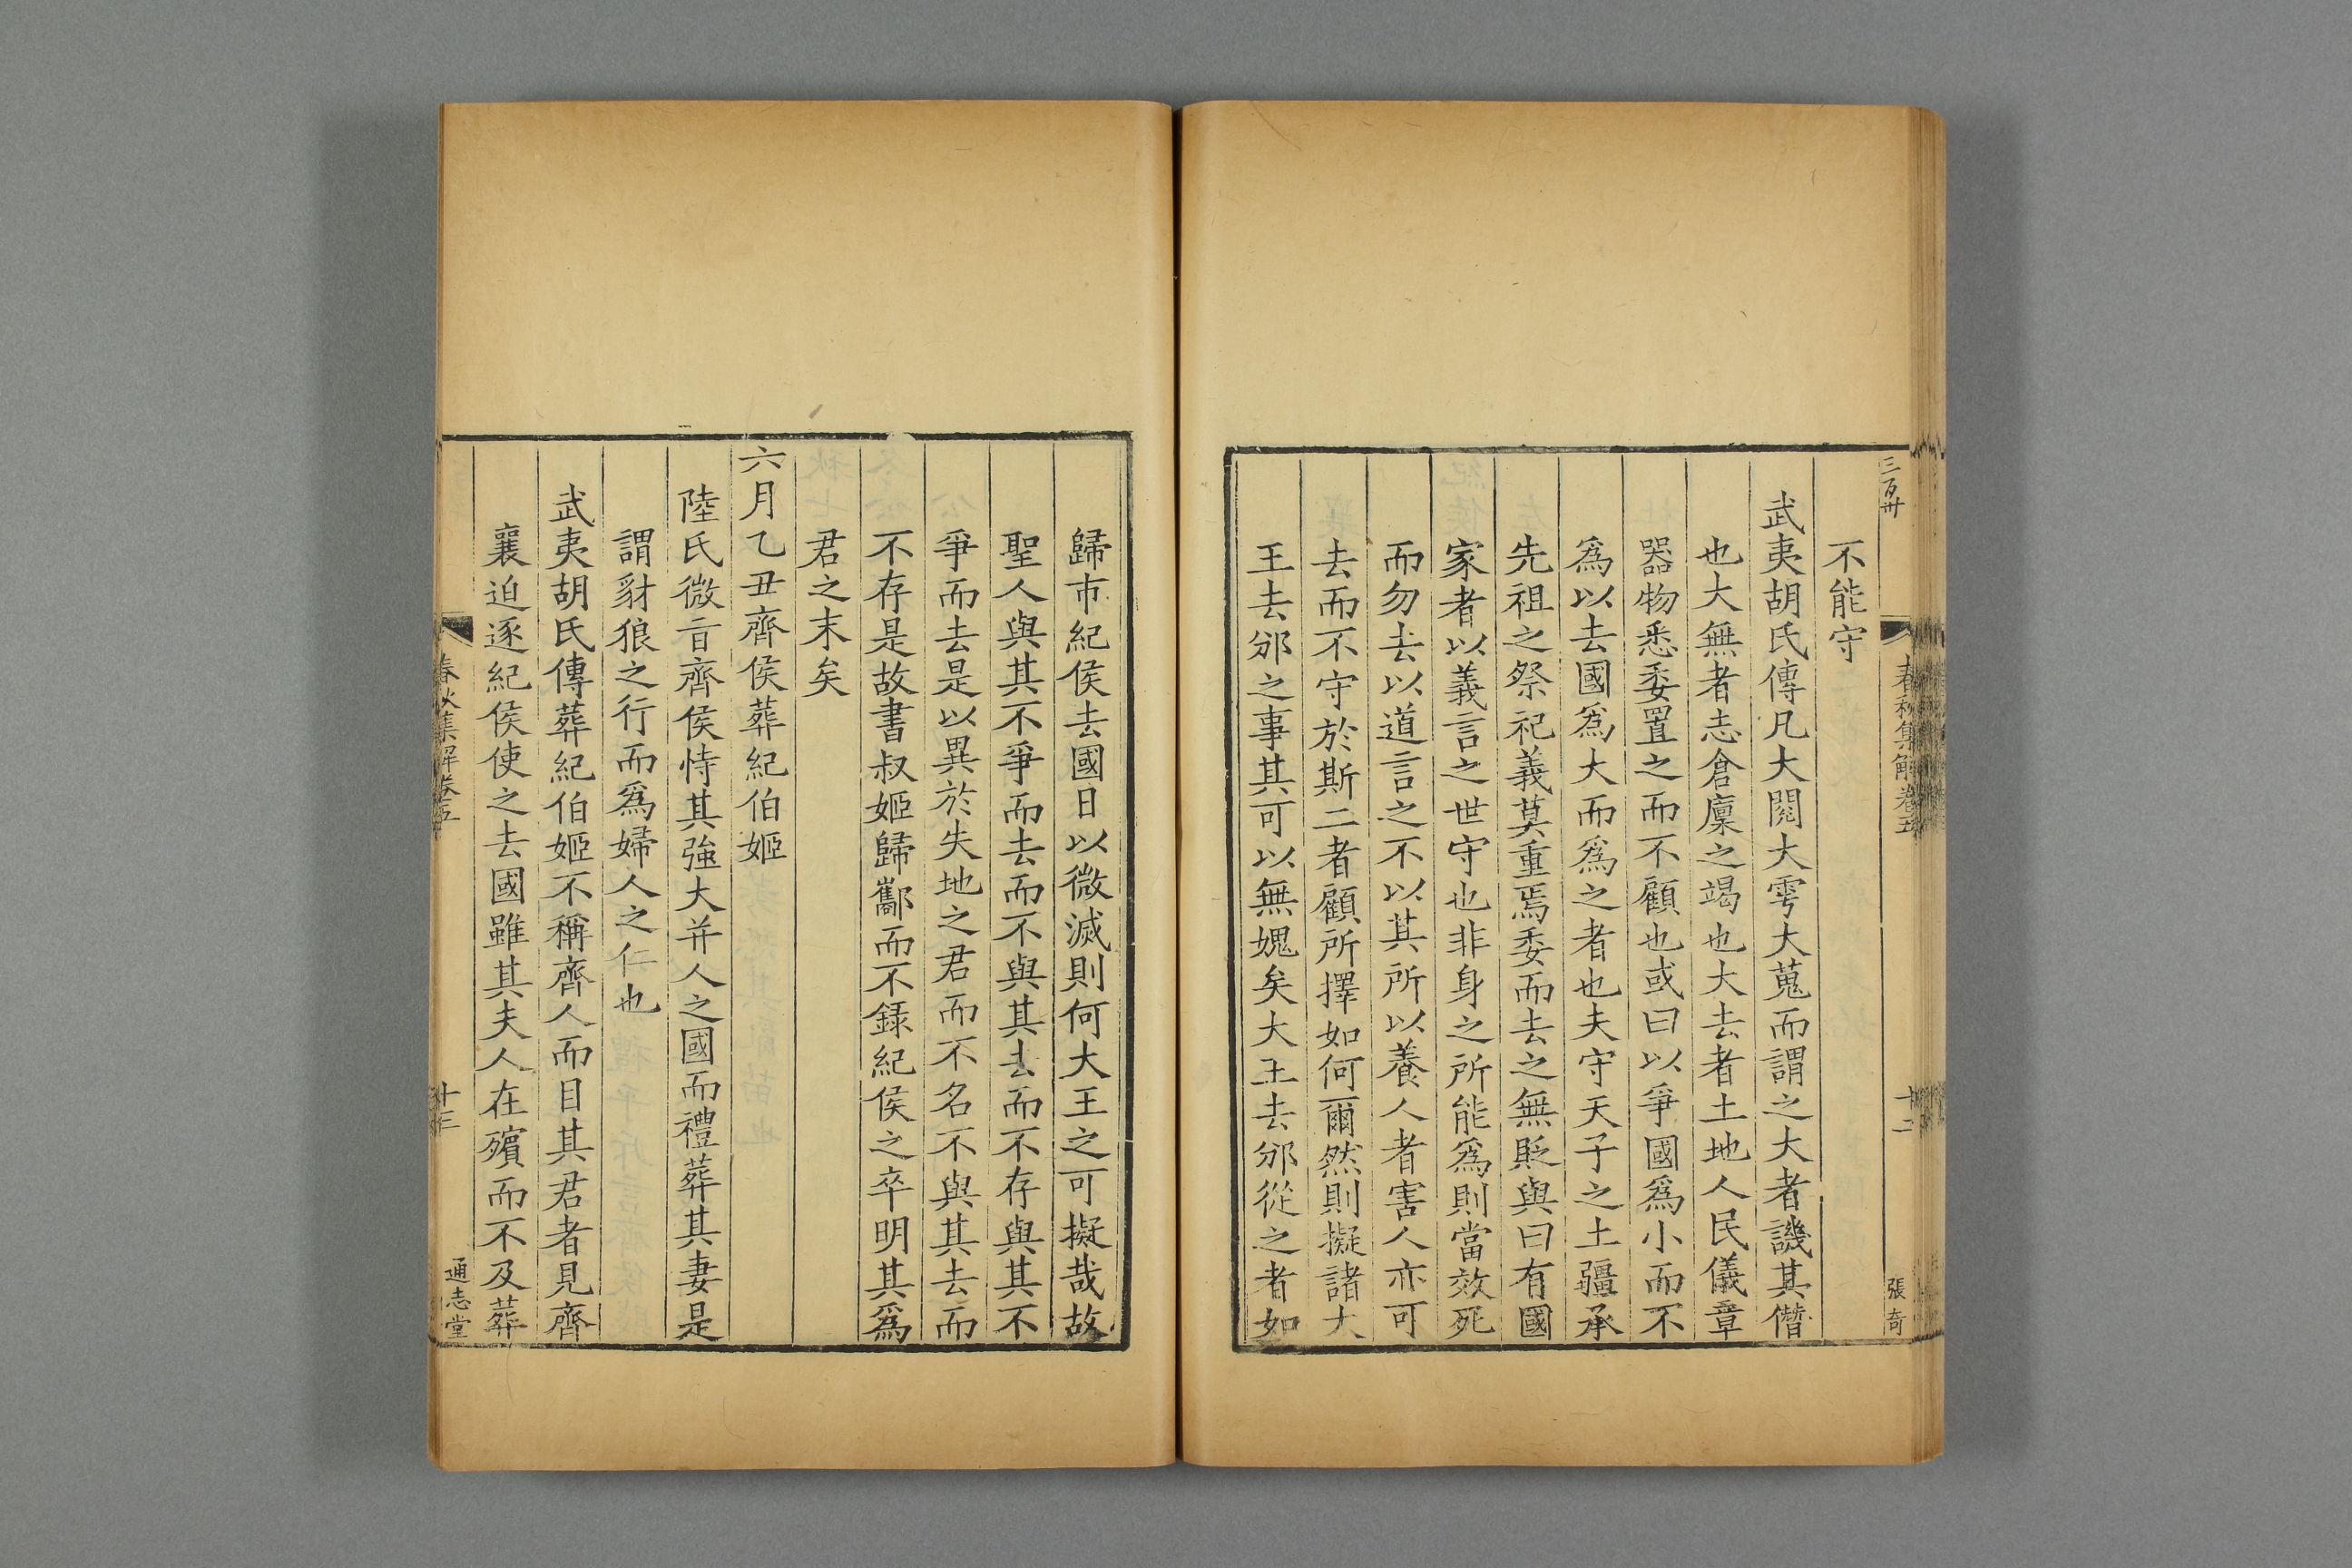 三百卅
春秋集解卷五
十二
張奇
不能守
武夷胡氏傳凡大閱大雩大蒐而謂之大者譏其僭
也大無者志倉廩之竭也大去者土地人民儀章
器物悉委置之而不顧也或曰以爭國爲小而不
爲以去國爲大而爲之者也夫守天子之土疆承
先祖之祭祀義莫重焉委而去之無貶與曰有國
家者以義言之世守也非身之所能爲則當效死
而勿去以道言之不以其所以養人者害人亦可
去而不守於斯二者顧所擇如何爾然則擬諸大
王去邠之事其可以無媿矣大王去邠從之者如
歸市紀侯去國日以微滅則何大王之可擬哉故
聖人與其不爭而去而不與其去而不存與其不
爭而去是以異於失地之君而不名不與其去而
不存是故書叔姬歸酅而不録紀侯之卒明其爲
君之末矣
六月乙丑齊侯葬紀伯姬
陸氏微㫖齊侯恃其強大并人之國而禮葬其妻是
謂豺狼之行而爲婦人之仁也
武夷胡氏傳葬紀伯姬不稱齊人而目其君者見齊
襄迫逐紀侯使之去國雖其夫人在殯而不及葬
春秋集解卷五
十三
通志堂